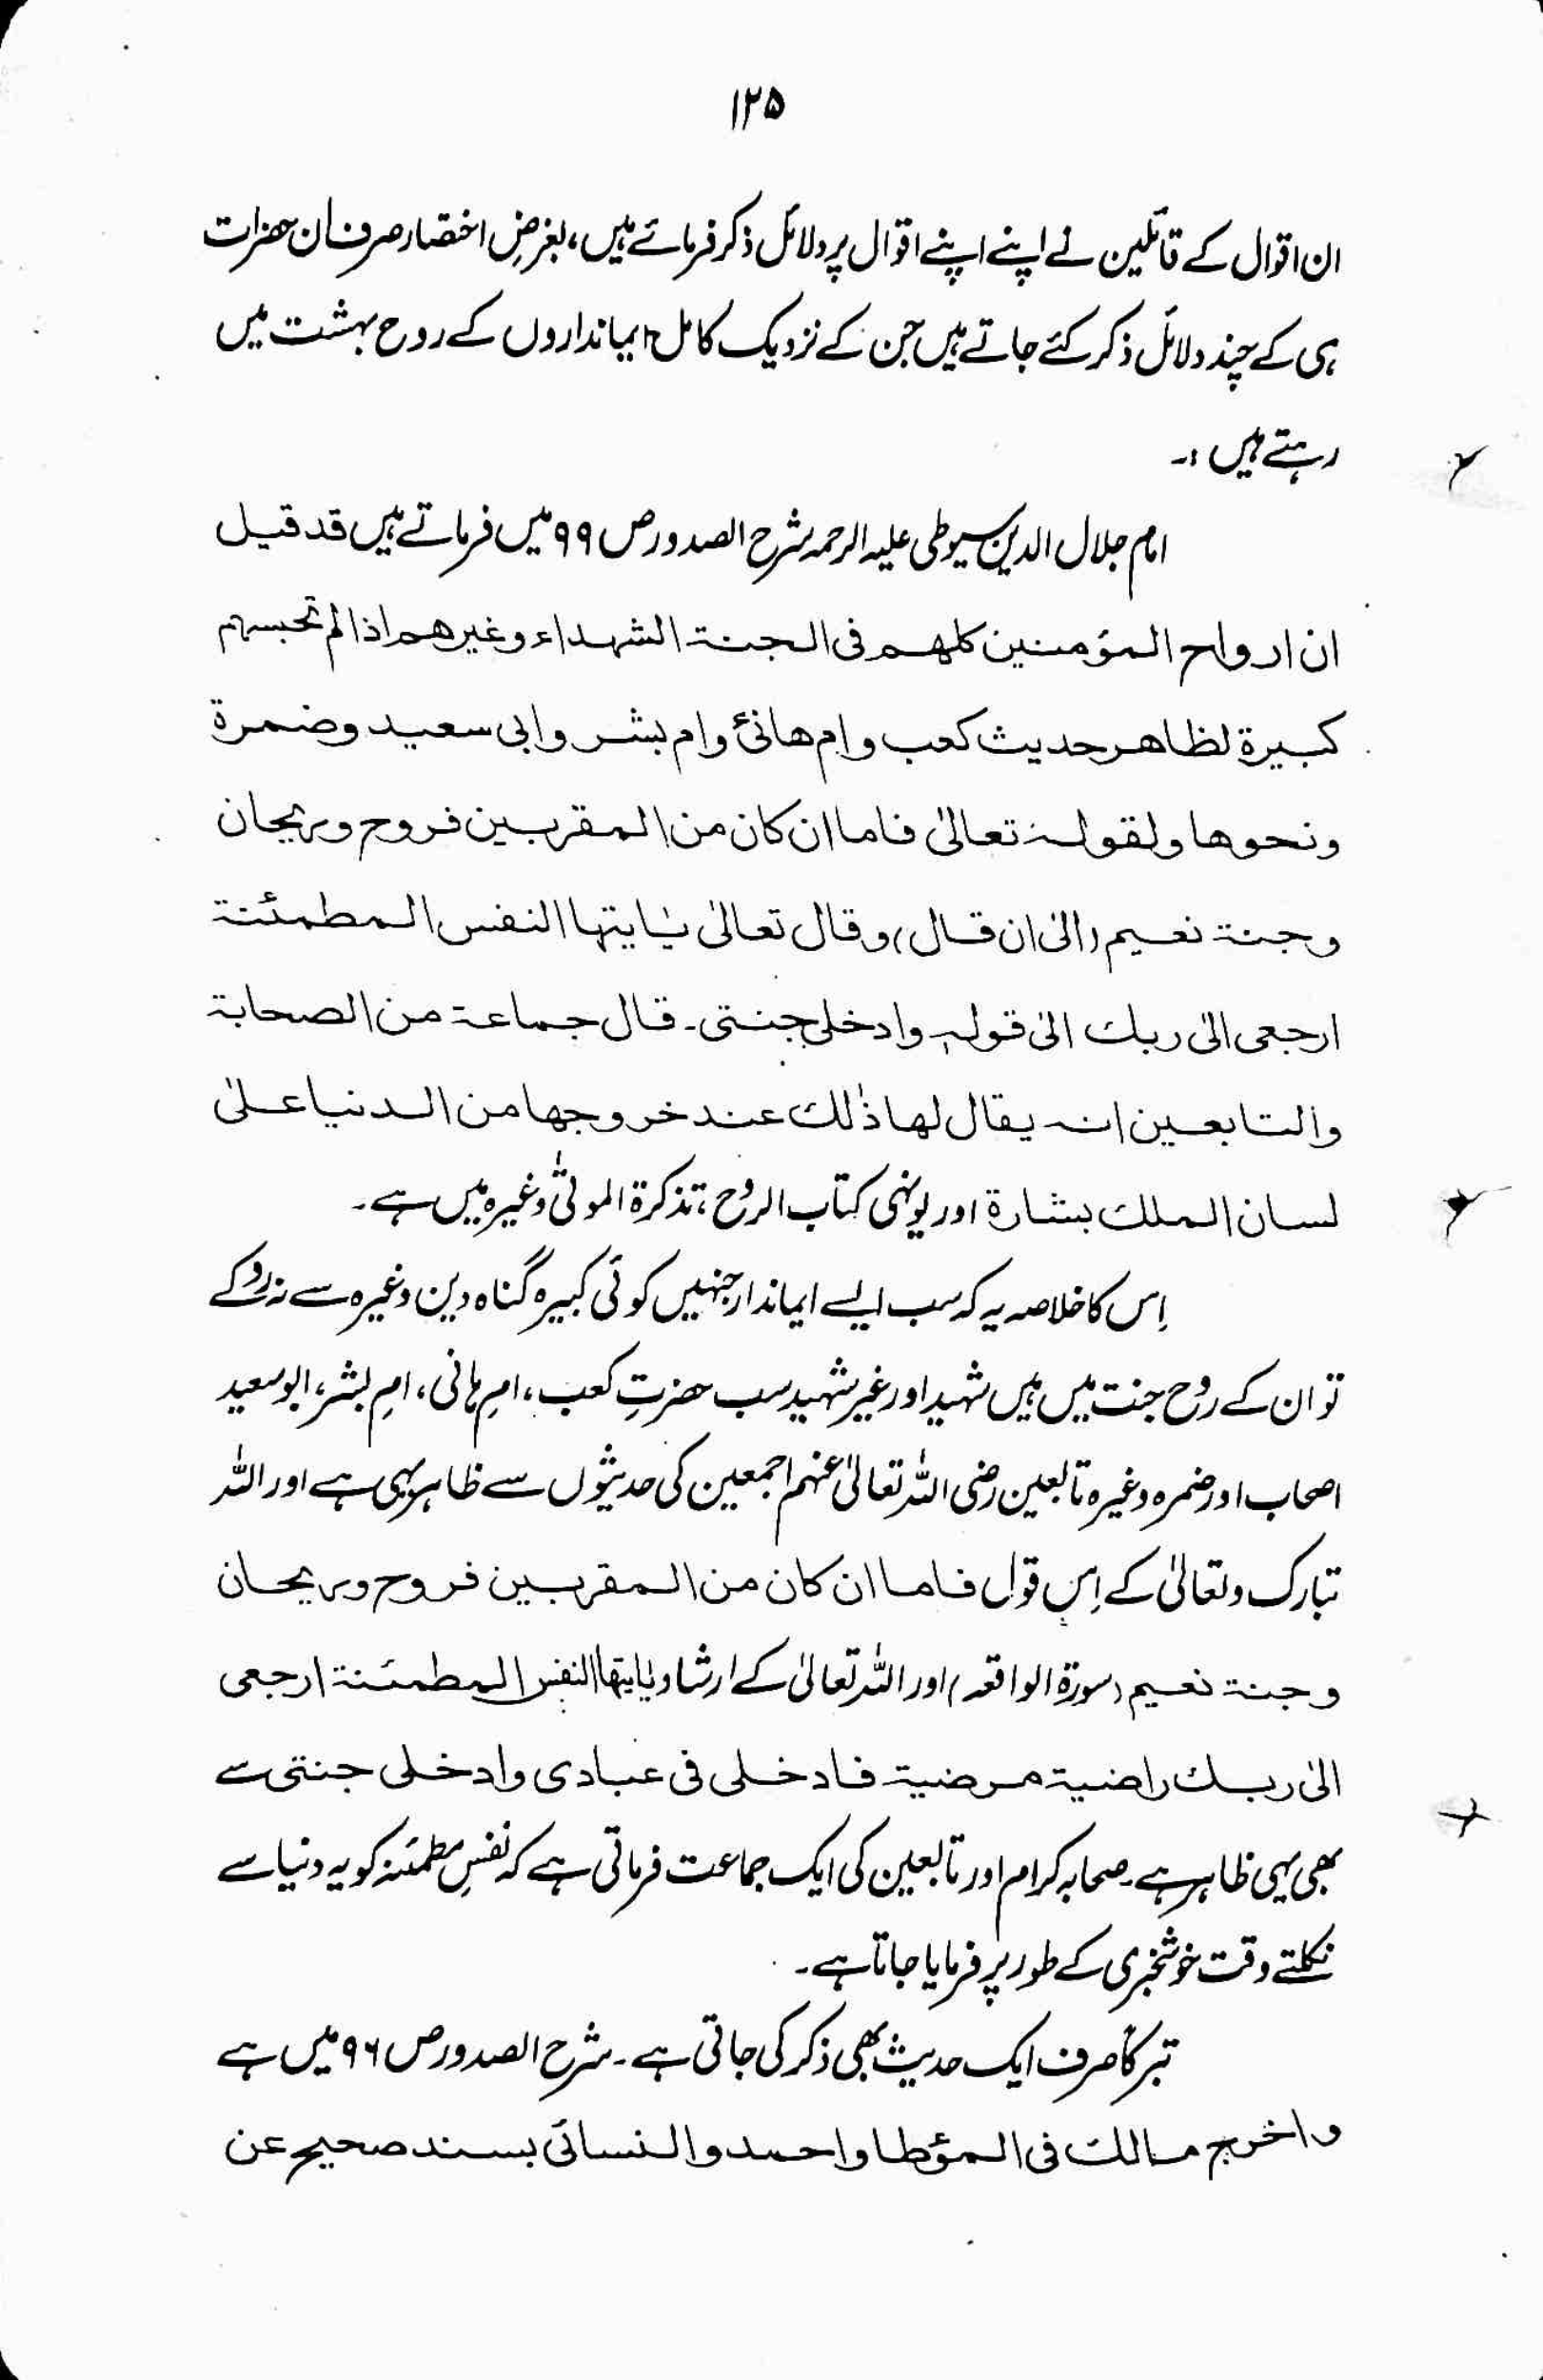 ۱۲۵
ان اقوال کے قائلین نے اپنے اپنے اقوال پر دلائل ذکر فرمائے ہیں، بغرضِ اختصار صرف ان حضرات
ہی کے چند دلائل ذکر کئے جاتے ہیں جن کے نزدیک کامل ایمانداروں کے روح بہشت میں
رہتے ہیں :۔
امام جلال الدین سیوطی علیہ الرحمہ شرح الصدور ص ۹۹ میں فرماتے ہیں قد قیل
ان ارواح المؤمنین کلهم فی الجنة الشهداء وغیرهم اذا لم تحبسهم
کبیرة لظاهر حدیث کعب وام هانئ وام بشر وابی سعید وضمرة
ونحوها ولقوله تعالیٰ فاما ان کان من المقربین فروح وریحان
وجنة نعیم (الیٰ ان قال) وقال تعالیٰ یٰایتها النفس المطمئنة
ارجعی الیٰ ربك الیٰ قولہٖ وادخلی جنتی۔ قال جماعة من الصحابة
والتابعین انه یقال لها ذٰلك عند خروجها من الدنیا علیٰ
لسان الملك بشارة اور یونہی کتاب الروح، تذکرۃ الموتیٰ وغیرہ میں ہے۔
اِس کا خلاصہ یہ کہ سب ایسے ایماندار جنہیں کوئی کبیرہ گناہ دین وغیرہ سے نہ روکے
تو ان کے روح جنت میں ہیں شہید اور غیر شہید سب حضرتِ کعب، امِ ہانی، امِ بشر، ابو سعید
اصحاب اور ضمرہ وغیرہ تابعین رضی اللہ تعالیٰ عنہم اجمعین کی حدیثوں سے ظاہر یہی ہے اور اللہ
تبارک وتعالیٰ کے اِس قول فاما ان کان من المقربین فروح وریحان
وجنة نعیم (سورۃ الواقعہ) اور اللہ تعالیٰ کے ارشاد یٰایتها النفس المطمئنة ارجعی
الیٰ ربك راضیة مرضیة فادخلی فی عبادی وادخلی جنتی سے
بھی یہی ظاہر ہے۔ صحابہ کرام اور تابعین کی ایک جماعت فرماتی ہے کہ نفسِ مطمئنہ کو یہ دنیا سے
نکلتے وقت خوشخبری کے طور پر فرمایا جاتا ہے۔
تبرکاً صرف ایک حدیث بھی ذکر کی جاتی ہے۔ شرح الصدور ص ۹۶ میں ہے
واخرج مالك فی المؤطا واحمد والنسائی بسند صحیح عن